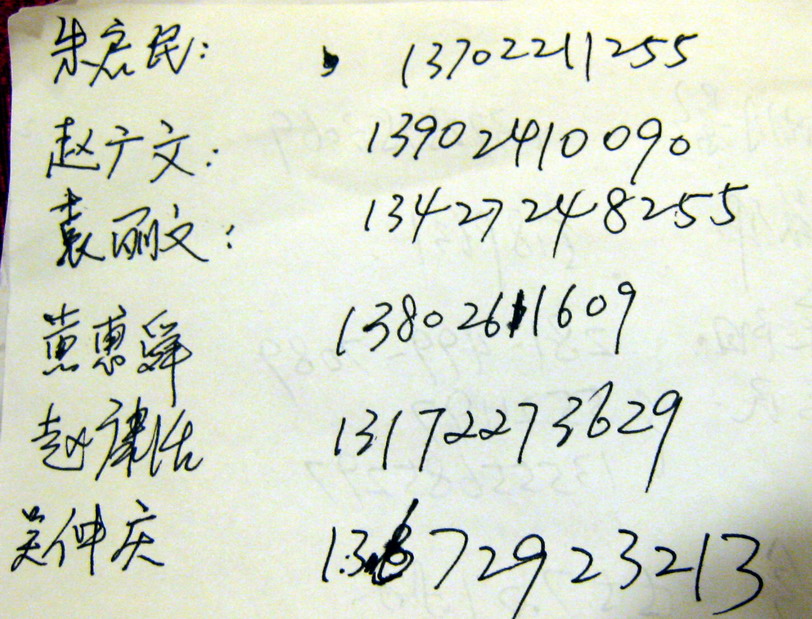 朱宏民: 13702211255
赵广文: 13902410090
袁丽文: 13427248255
黄惠舜 13802611609
赵肃浩 13172273629
吴仲庆 13672923213